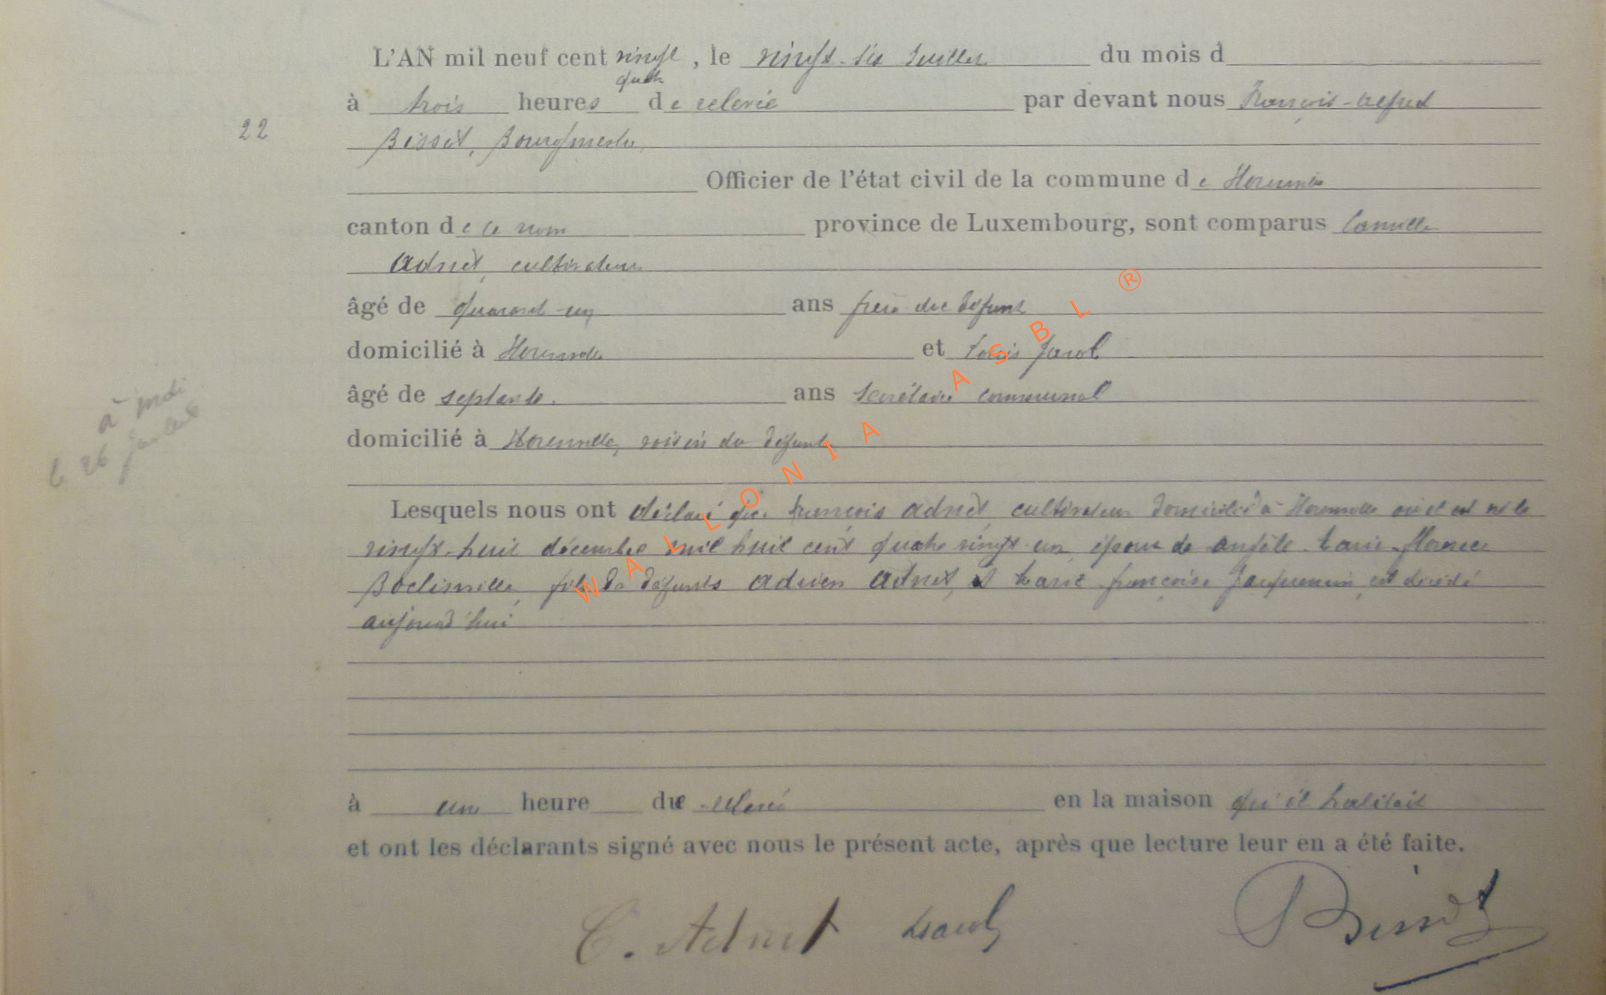 L'AN mil neuf cent vingt quatre, le vingt-six Juillet du mois d
à trois heures de relevée par devant nous François-Alfred
22
Bissot, Bourgmestre
Officier de l'état civil de la commune de
canton de ce nom province de Luxembourg, sont comparus Camille
Adnet, cultivateur
âgé de quarante-un ans frère du défunt
domicilié à et Louis
âgé de septante. ans secrétaire communal
domicilié à voisin du défunt
à midi
le 26
Lesquels nous ont déclaré que François Adnet, cultivateur domicilié à où il est né le
vingt-huit décembre mil huit cent quatre vingt-un, époux de Marie-Florence
fils de défunts Adrien Adnet, et Marie Françoise Jacquemin, est décédé
aujourd'hui
à une heure de relevée en la maison qu'il habitait
et ont les déclarants signé avec nous le présent acte, après que lecture leur en a été faite.
C. Adnet Bissot
WALLONIA ASBL ®